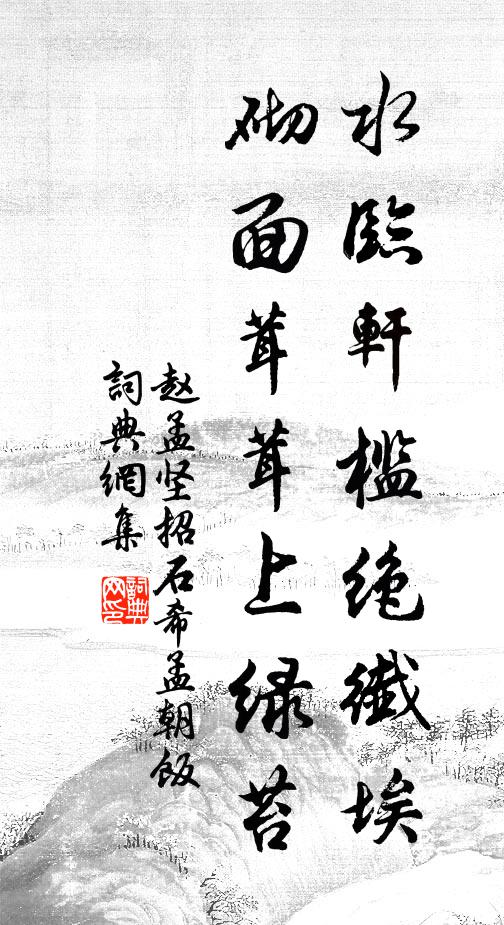 水臨軒檻绝纖埃
砌面茸茸上绿苔
赵孟坚招石希孟朝飯
詞典網集
詞典网印